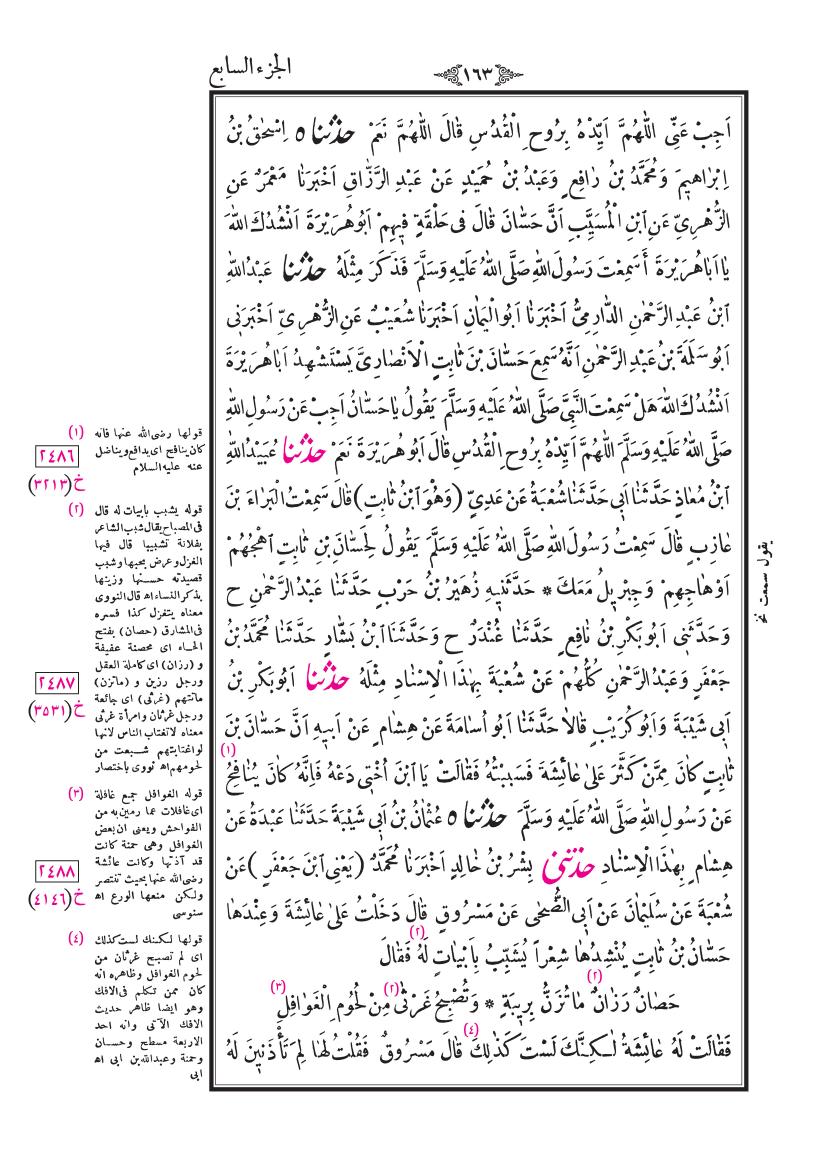 الجزء السابع
١٦٣
اَجِبْ عَنِّى اَللّٰهُمَّ اَيِّدْهُ بِرُوحِ الْقُدُسِ قَالَ اَللّٰهُمَّ نَعَمْ حدثنا ٥ اِسْحٰقُ بْنُ
اِبْرَاهِيمَ وَمُحَمَّدُ بْنُ رَافِعٍ وَعَبْدُ بْنُ حُمَيْدٍ عَنْ عَبْدِ الرَّزَّاقِ اَخْبَرَنَا مَعْمَرٌ عَنِ
الزُّهْرِىِّ عَنِ ابْنِ الْمُسَيَّبِ اَنَّ حَسَّانَ قَالَ فِى حَلْقَةٍ فِيهِمْ اَبُوهُرَيْرَةَ اَنْشُدُكَ اللّٰهَ
يَا اَبَاهُرَيْرَةَ أَسَمِعْتَ رَسُولَ اللّٰهِ صَلَّى اللّٰهُ عَلَيْهِ وَسَلَّمَ فَذَكَرَ مِثْلَهُ حدثنا عَبْدُاللّٰهِ
ابْنُ عَبْدِ الرَّحْمٰنِ الدَّارِمِىُّ اَخْبَرَنَا اَبُو الْيَمَانِ اَخْبَرَنَا شُعَيْبٌ عَنِ الزُّهْرِىِّ اَخْبَرَنِى
اَبُو سَلَمَةَ بْنُ عَبْدِ الرَّحْمٰنِ اَنَّهُ سَمِعَ حَسَّانَ بْنَ ثَابِتٍ الْاَنْصَارِىَّ يَسْتَشْهِدُ اَبَا هُرَيْرَةَ
اَنْشُدُكَ اللّٰهَ هَلْ سَمِعْتَ النَّبِىَّ صَلَّى اللّٰهُ عَلَيْهِ وَسَلَّمَ يَقُولُ يَا حَسَّانُ اَجِبْ عَنْ رَسُولِ اللّٰهِ
صَلَّى اللّٰهُ عَلَيْهِ وَسَلَّمَ اَللّٰهُمَّ اَيِّدْهُ بِرُوحِ الْقُدُسِ قَالَ اَبُو هُرَيْرَةَ نَعَمْ حدثنا عُبَيْدُ اللّٰهِ
ابْنُ مُعَاذٍ حَدَّثَنَا اَبِى حَدَّثَنَا شُعْبَةُ عَنْ عَدِىٍّ (وَهُوَ ابْنُ ثَابِتٍ) قَالَ سَمِعْتُ الْبَرَاءَ بْنَ
عَازِبٍ قَالَ سَمِعْتُ رَسُولَ اللّٰهِ صَلَّى اللّٰهُ عَلَيْهِ وَسَلَّمَ يَقُولُ لِحَسَّانِ بْنِ ثَابِتٍ اهْجُهُمْ
اَوْ هَاجِهِمْ وَجِبْرِيلُ مَعَكَ * حَدَّثَنِيهِ زُهَيْرُ بْنُ حَرْبٍ حَدَّثَنَا عَبْدُ الرَّحْمٰنِ ح
وَحَدَّثَنِى اَبُو بَكْرِ بْنُ نَافِعٍ حَدَّثَنَا غُنْدَرٌ ح وَحَدَّثَنَا ابْنُ بَشَّارٍ حَدَّثَنَا مُحَمَّدُ بْنُ
جَعْفَرٍ وَعَبْدُ الرَّحْمٰنِ كُلُّهُمْ عَنْ شُعْبَةَ بِهٰذَا الْاِسْنَادِ مِثْلَهُ حدثنا اَبُو بَكْرِ بْنُ
اَبِى شَيْبَةَ وَاَبُو كُرَيْبٍ قَالَا حَدَّثَنَا اَبُو اُسَامَةَ عَنْ هِشَامٍ عَنْ اَبِيهِ اَنَّ حَسَّانَ بْنَ
ثَابِتٍ كَانَ مِمَّنْ كَثَّرَ عَلَى عَائِشَةَ فَسَبَبْتُهُ فَقَالَتْ يَا ابْنَ اُخْتِى دَعْهُ فَاِنَّهُ كَانَ يُنَافِحُ (١)
عَنْ رَسُولِ اللّٰهِ صَلَّى اللّٰهُ عَلَيْهِ وَسَلَّمَ حدثنا ٥ عُثْمَانُ بْنُ اَبِى شَيْبَةَ حَدَّثَنَا عَبْدَةُ عَنْ
هِشَامٍ بِهٰذَا الْاِسْنَادِ حدثنى بِشْرُ بْنُ خَالِدٍ اَخْبَرَنَا مُحَمَّدٌ (يَعْنِى ابْنَ جَعْفَرٍ) عَنْ
شُعْبَةَ عَنْ سُلَيْمَانَ عَنْ اَبِى الضُّحٰى عَنْ مَسْرُوقٍ قَالَ دَخَلْتُ عَلَى عَائِشَةَ وَعِنْدَهَا
حَسَّانُ بْنُ ثَابِتٍ يُنْشِدُهَا شِعْراً يُشَبِّبُ بِاَبْيَاتٍ (٢) لَهُ فَقَالَ
حَصَانٌ رَزَانٌ (٢) مَا تُزَنُّ بِرِيبَةٍ * وَتُصْبِحُ غَرْثٰى (٢) مِنْ لُحُومِ الْغَوَافِلِ (٣)
فَقَالَتْ لَهُ عَائِشَةُ لٰكِنَّكَ لَسْتَ كَذٰلِكَ (٤) قَالَ مَسْرُوقٌ فَقُلْتُ لَهَا لِمَ تَأْذَنِينَ لَهُ
يقول سمعت نخ
(١) قولها رضى الله عنها فانه
كان ينافح اى يدافع ويناضل
عنه عليه السلام
(٢) قوله يشبب بابيات له قال
فى المصباح يقال شبب الشاعر
بفلانة تشبيبا قال فيها
الغزل وعرض بحبها وشبب
قصيدته حسنها وزينها
بذكر النساء اه قال النووى
معناه يتغزل كذا فسره
فى المشارق (حصان) بفتح
الحاء اى محصنة عفيفة
و (رزان) اى كاملة العقل
ورجل رزين و (ماتزن)
ماتتهم (غرثى) اى جائعة
ورجل غرثان وامرأة غرثى
معناه لاتغتاب الناس لانها
لو اغتابتهم شبعت من
لحومهم اه نووى باختصار
(٣) قوله الغوافل جمع غافلة
اى غافلات عما رمين به من
الفواحش ويعنى ان بعض
الغوافل وهى حمنة كانت
قد آذتها وكانت عائشة
رضى الله عنها بحيث تنتصر
ولكن منعها الورع اه
سنوسى
(٤) قولها لكنك لست كذلك
اى لم تصبح غرثان من
لحوم الغوافل وظاهره انه
كان ممن تكلم فى الافك
وهو ايضا ظاهر حديث
الافك الآتى وانه احد
الاربعة مسطح وحسان
وحمنة وعبدالله بن ابى اه
ابى
٢٤٨٦
خ (٣٢١٣)
٢٤٨٧
خ (٣٥٣١)
٢٤٨٨
خ (٤١٤٦)